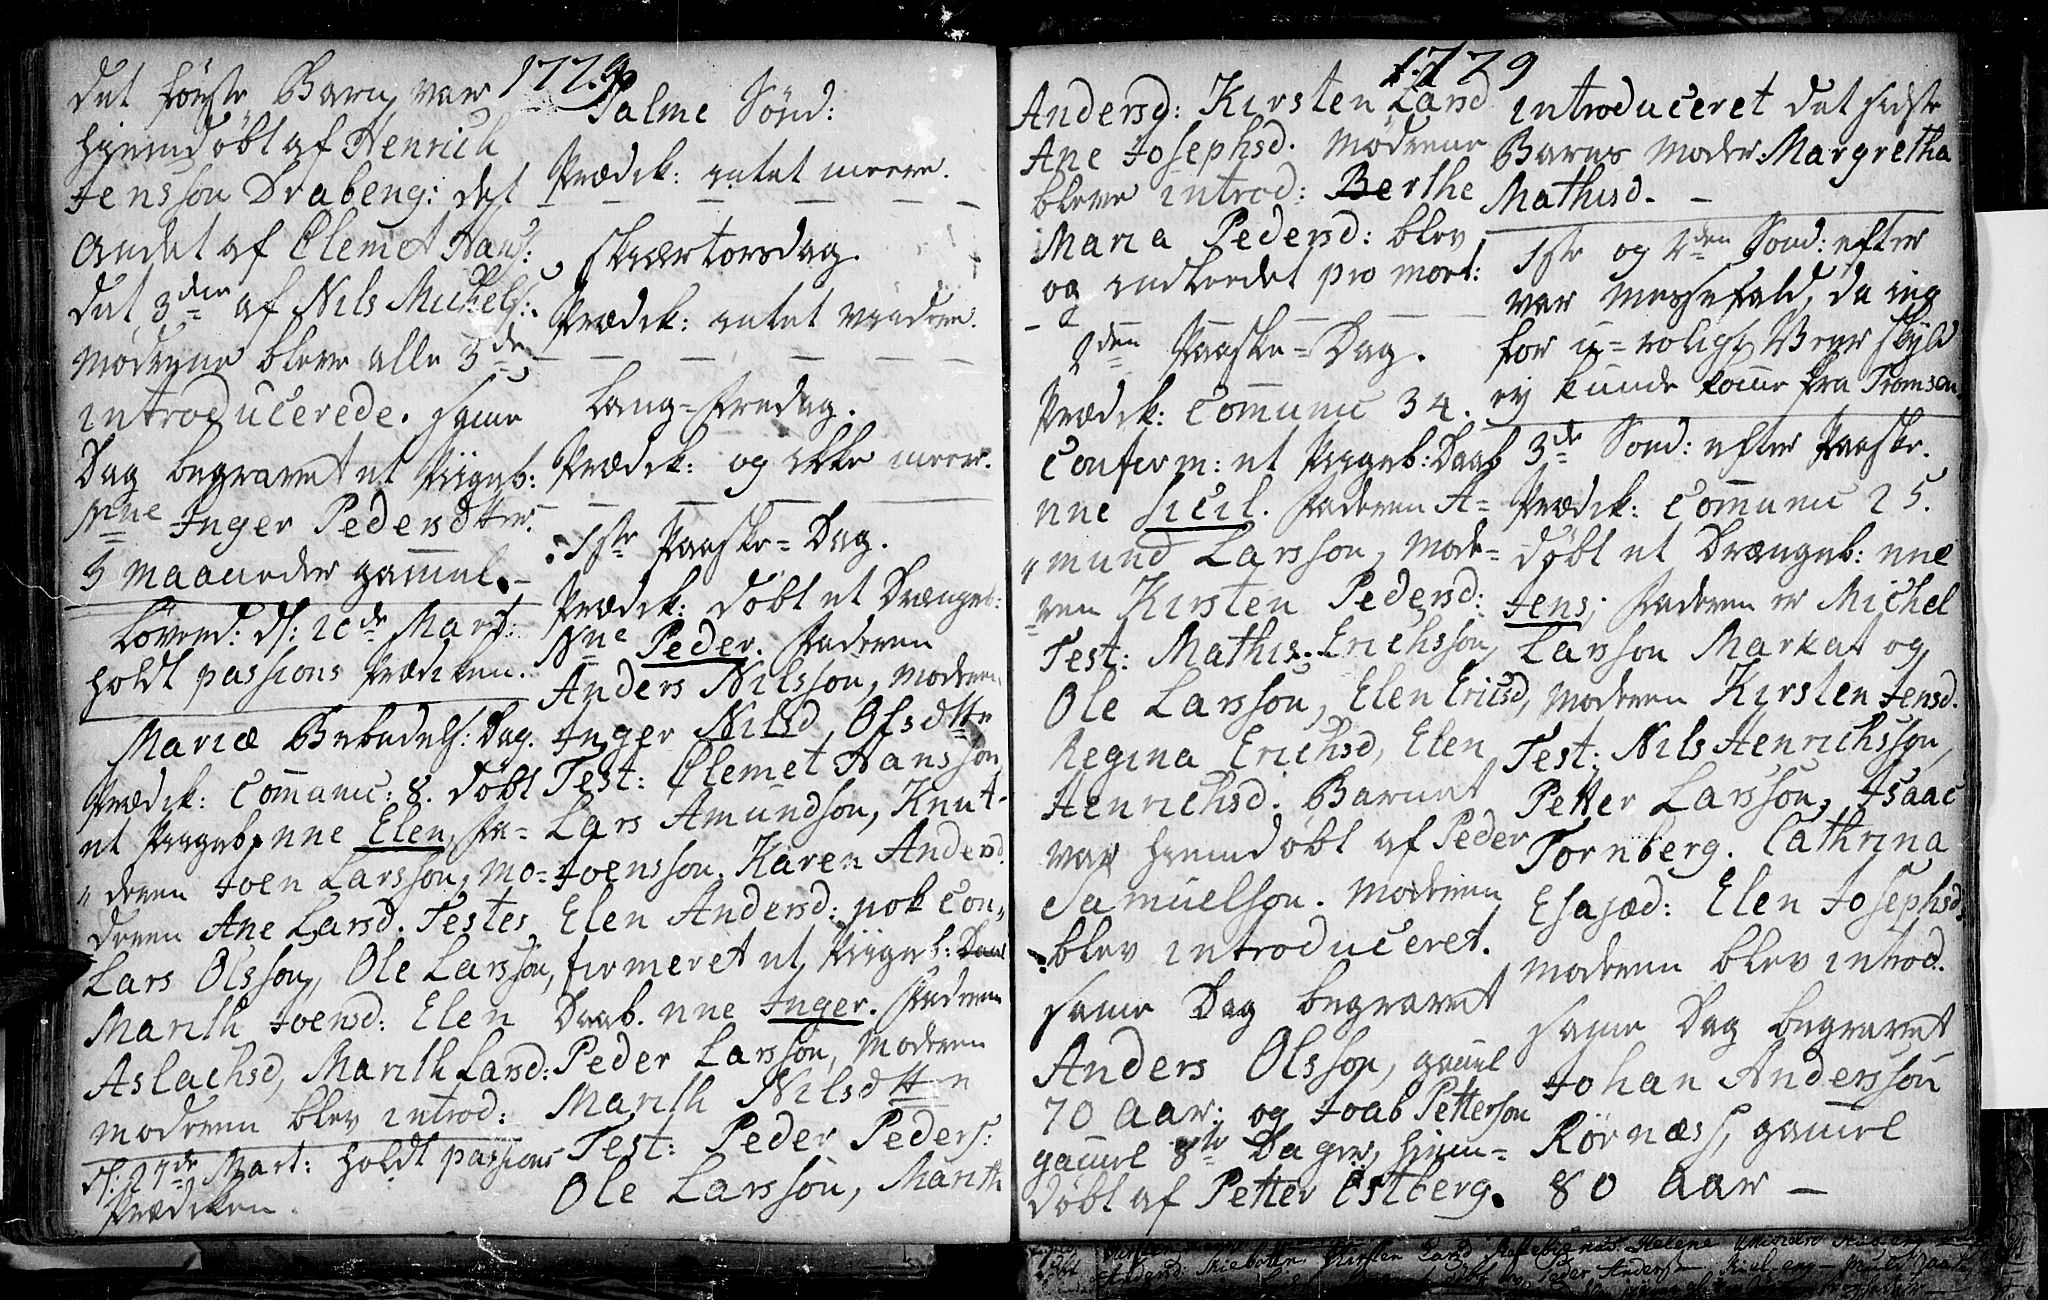 1779
det første Barn var
hjemdøbt af Henrich
Jensson Drabeng: det
Andet af Clemet Hans:
det 3die af Nils Michels:
Mødrene bleve alle 3de
introducerede. same
Dag begravet et Pigeb:
Nne Inger Pedersdtter
5 Maaneder gammel.
Løverd: d: 20de Mart:
holdt passions Prædiken.
Mariæ Bebudels: Dag.
Prædik: Communic: 8. døbt
et Pigeb: nne Elen, Fa=
deren Joen Larsson, Mo=
deren Ane Larsd. Testes
Lars Olsson, Ole Larsson,
Marith Joensd: Elen
Aslachsd, Marith Larsd:
moderen blev introd:
d: 27de Mart: holdt passions
Prædiken.
Palme Sønd:
Prædik: intet meere.
Skiærtorsdag.
Prædik: intet viidere.
Lang=Fredag.
Prædik: og ikke meer.
1ste Paaske=Dag.
Prædik: døbt et Drængeb:
Nne Peder. Faderen
Anders Nilsson, Moderen
Inger Nilsd, Olsdtter
Test: Clemet Hansson,
Lars Amundson, Knut
Joensson. Karen Andersd
Elen Andersd: nok Con=
firmeret et Pigeb:
Daab. nne Inger. Faderen
Peder Larsson, Moderen
Marith Nilsdtter
Test: Peder Peders:
Ole Larsson, Marith
1779
Andersd: Kirsten Larsd
Ane Josephsd. Mødrene
bleve introd: Berthe
Maria Pedersd: blev
og indleedet pro mort:
2den Paaske=Dag.
Prædik: Communic 34.
Confirm: et Pigeb: Daab
nne Sicil. Faderen A=
mund Larsson, Mode=
ren Kirsten Pedersd:
Test: Mathis Erichsson,
Ole Larsson, Elen Ericsd,
Regina Erichsd, Elen
Henrichsd. Barnet
var hjemdøbt af Peder
Samuelson. Moderen
blev introduceret.
same Dag begravet
Anders Olsson, gamel
70 Aar: og Joab Petterson
gamel 8te Dager, hjem=
døbt af Petter Østberg.
introduceret det sidste
Barns Moder: Margretha
Mathisd.
1ste og 2den Sønd: efter
var Messefald, da jeg
for u=roligt Veir skyld
ej kunde komme fra Tromsøen
3de Sønd: efter Paaske.
Prædik: Communic 25.
døbt et Drængeb: nne
Jens, Faderen er Michel
Larsson Markat og
Moderen Kirsten Jensd.
Test: Nils Henrichsson,
Petter Larsson, Isaac
Tornberg. Cathrina
Esajæd: Elen Josephsd:
moderen blev introd.
same Dag begravet
Johan Andersson
Rørnæss, gamel
80 Aar